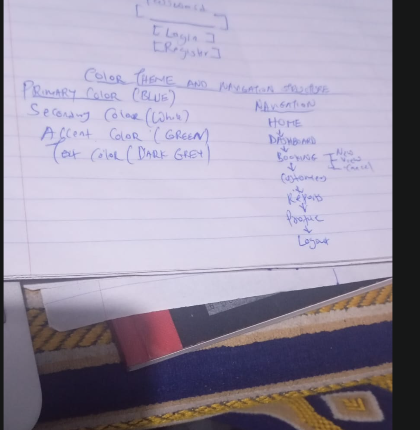 [ Login ]
[ Register ]
COLOR THEME AND NAVIGATION STRUCTURE
PRIMARY COLOR (BLUE)
Secondary Color (White)
Accent Color (GREEN)
Text Color (DARK GREY)
NAVIGATION
HOME
DASHBOARD
BOOKINGS
New
View
Cancel
Customers
Reports
Profile
Logout